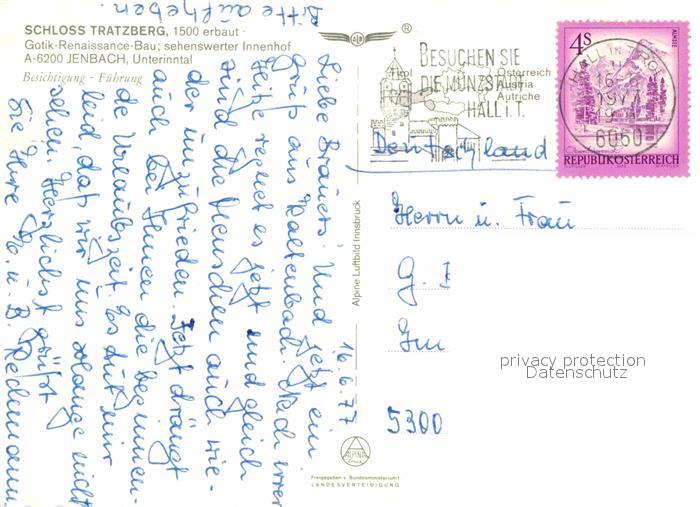 SCHLOSS TRATZBERG, 1500 erbaut ·
Gotik-Renaissance-Bau; sehenswerter Innenhof
A-6200 JENBACH, Unterinntal
Besichtigung - Führung
Bitte aufheben.
16.6.77
Liebe Brauers! Und jetzt ein
Gruß aus Kaltenbach. Nach irrer
Hitze regnet es jetzt und gleich
sind die Menschen auch wie-
der unzufrieden. Jetzt drängt
auch bei Ihnen die beginnen-
de Urlaubszeit. Es tut mir
leid, daß wir uns solange nicht
sehen. Herzlichst grüßt
Sie Ihre u. B.
Alpine Luftbild Innsbruck
ALPINA
Freigegeben v. Bundesministerium f.
LANDESVERTEIDIGUNG
®
BESUCHEN SIE
DIE MÜNZSTADT
HALL i. T.
Tirol
Österreich
Austria
Autriche
4S
ALMSEE
HALL IN TIROL
1977
6060
REPUBLIK ÖSTERREICH
Deutschland
Herrn u. Frau
G.
Im
5300
privacy protection
Datenschutz